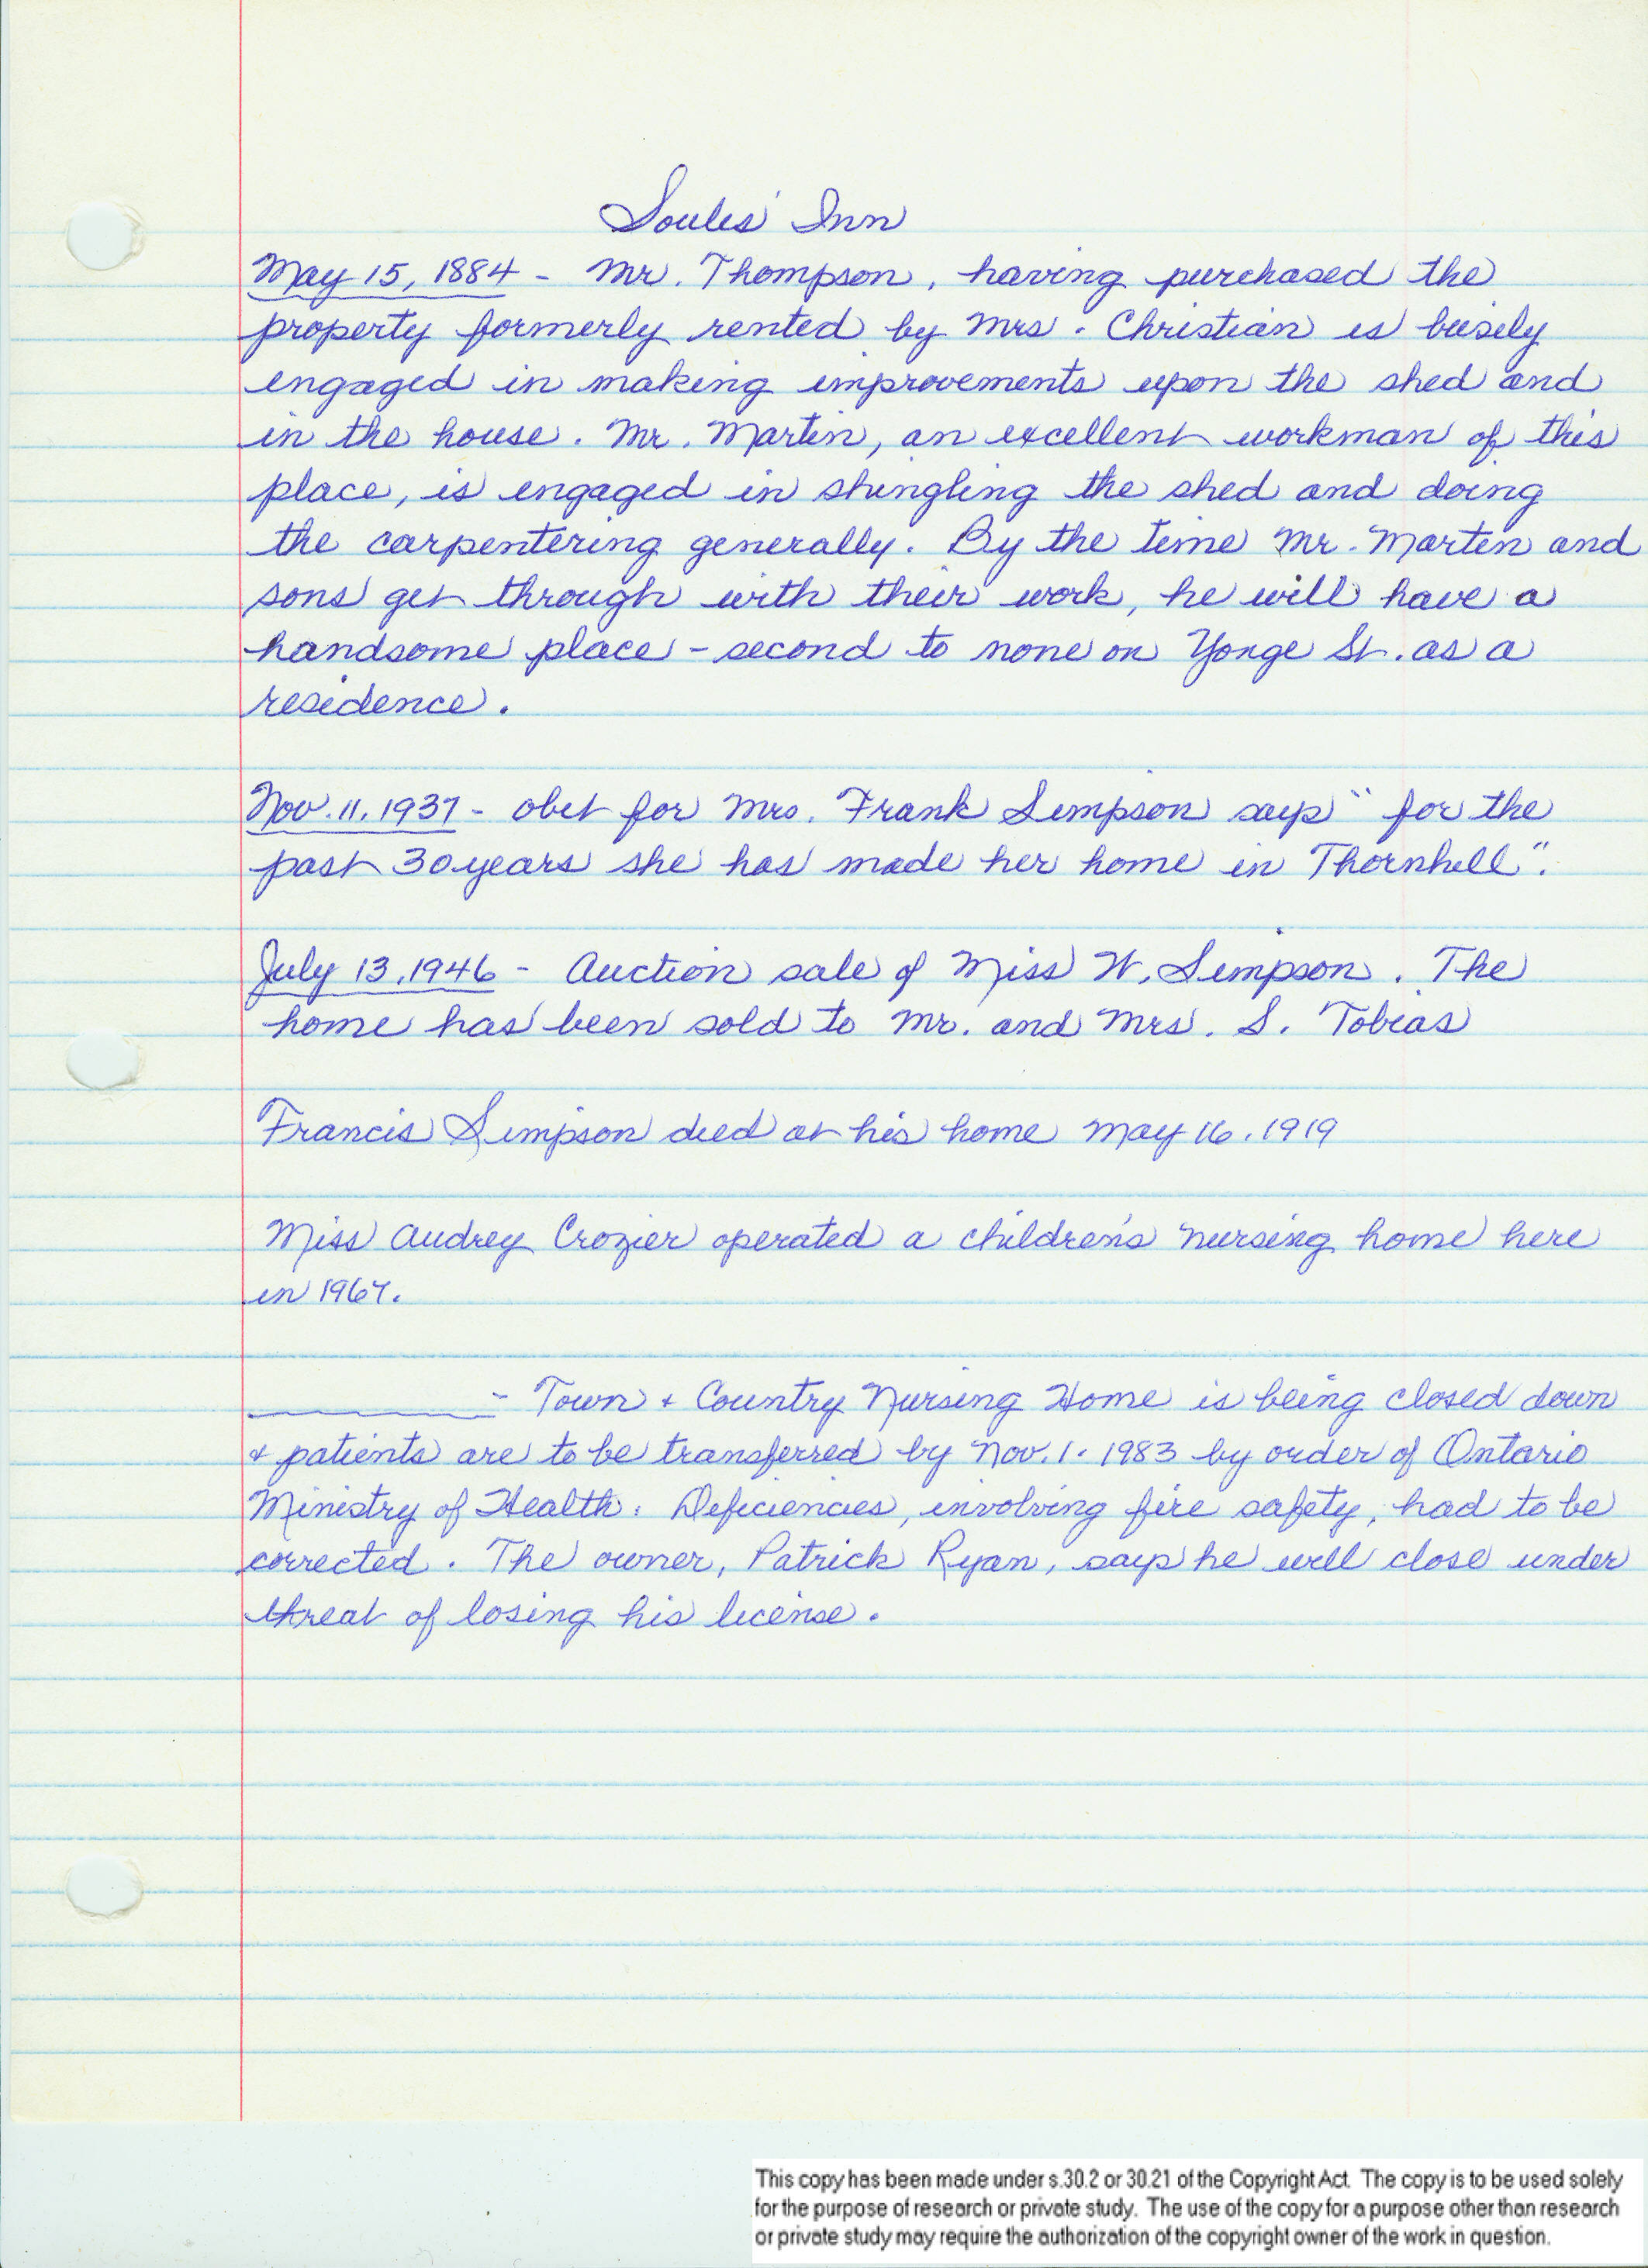 Soules' Inn
May 15, 1884 - Mr. Thompson, having purchased the
property formerly rented by Mrs. Christian is busily
engaged in making improvements upon the shed and
in the house. Mr. Martin, an excellent workman of this
place, is engaged in shingling the shed and doing
the carpentering generally. By the time Mr. Martin and
sons get through with their work, he will have a
handsome place - second to none on Yonge St. as a
residence.
Nov. 11, 1937 - obit for Mrs. Frank Simpson says "for the
past 30 years she has made her home in Thornhill".
July 13, 1946 - Auction sale of Miss W. Simpson. The
home has been sold to Mr. and Mrs. S. Tobias
Francis Simpson died at his home May 16, 1919
Miss Audrey Crozier operated a children's nursing home here
in 1967.
- Town + Country Nursing Home is being closed down
+ patients are to be transferred by Nov. 1. 1983 by order of Ontario
Ministry of Health. Deficiencies, involving fire safety, had to be
corrected. The owner, Patrick Ryan, says he will close under
threat of losing his license.
This copy has been made under s.30.2 or 30.21 of the Copyright Act. The copy is to be used solely
for the purpose of research or private study. The use of the copy for a purpose other than research
or private study may require the authorization of the copyright owner of the work in question.